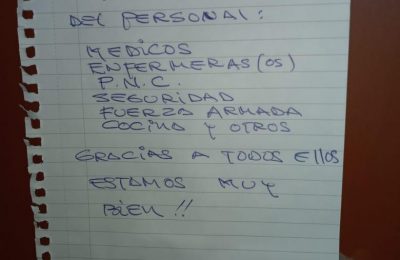 DEL PERSONAL:
MEDICOS
ENFERMERAS(OS)
P.N.C.
SEGURIDAD
FUERZA ARMADA
COCINA Y OTROS
GRACIAS A TODOS ELLOS
ESTAMOS MUY
BIEN!!